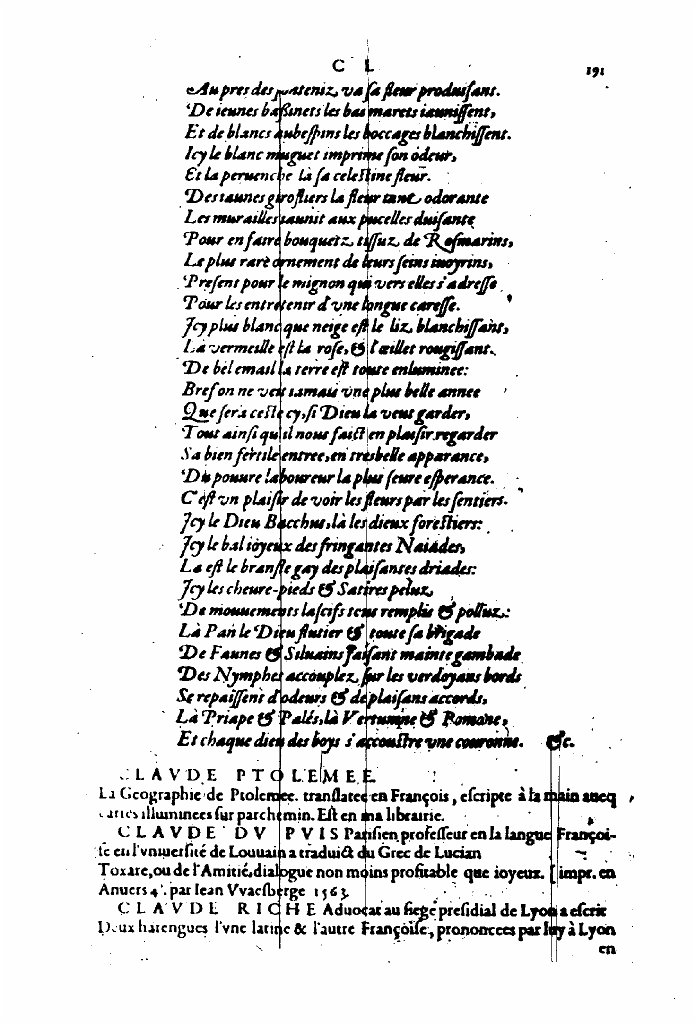 C L
191
Aupres des pateniz, va sa fleur produisant.
De ieunes baßinets les bas marets iaunissent,
Et de blancs aubespins les boccages blanchissent.
Icy le blanc muguet imprime son odeur,
Et la peruenche là sa celestine fleur.
Des iaunes girofliers la fleur tant odorante
Les murailles iaunit aux pucelles duisante
Pour en faire bouquetz tissuz de Rosmarins,
Le plus rare ornement de leurs seins iuoyrins,
Present pour le mignon qui vers elles s'adresse
Pour les entretenir d'vne longue caresse.
Icy plus blanc que neige est le liz blanchissant,
Là vermeille est la rose, & l'œillet rougissant.
De bel email la terre est toute enluminee:
Bref on ne veit iamais vne plus belle annee
Que sera ceste cy, si Dieu la veut garder,
Tout ainsi qu'il nous faict en plaisir regarder
Sa bien fertile entree, en tresbelle apparance,
Du pouure laboureur la plus seure esperance.
C'est vn plaisir de voir les fleurs par les sentiers.
Icy le Dieu Bacchus, là les dieux forestiers:
Icy le bal ioyeux des fringantes Naiades,
La est le bransle gay des plaisantes driades:
Icy les cheure-pieds & Satires peluz,
De mouuements lascifs tous remplis & polluz:
Là Pan le Dieu flutier & toute sa brigade
De Faunes & Siluains faisant mainte gambade
Des Nymphes accouplez sur les verdoyans bords
Se repaissent d'odeurs & de plaisans accords,
Là Priape & Palés, là Vertumne & Pomone,
Et chaque dieu des boys s'accoustre vne couronne. &c.
CLAVDE PTOLEMEE
La Geographie de Ptolemee. translatee en François, escripte à la main aueq
cartes illuminees sur parchemin. Est en ma librairie.
CLAVDE DV PVIS Parisien professeur en la langue Françoi-
se en l'vniuersité de Louuain a traduict du Grec de Lucian
Toxare, ou de l'Amitié, dialogue non moins profitable que ioyeux. [impr. en
Anuers 4°. par Iean VVaesberge 1563.
CLAVDE RICHE Aduocat au siege presidial de Lyon a escrit
Deux harengues l'vne latine & l'autre Françoise, prononcees par luy à Lyon
en